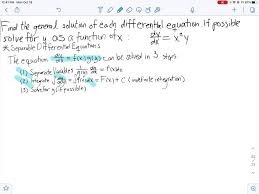 12:41 PM Mon Oct 19
Find the general solution of each differential equation. If possible
solve for y as a function of x: dy/dx = x²y
* Separable Differential Equations
The equation dy/dx = f(x)g(y) can be solved in 3 steps
(1) Separate Variables 1/g(y) dy/dx = f(x)
(2) Integrate = F(x) + C (indefinite integration)
(3) Solve for y (if possible)